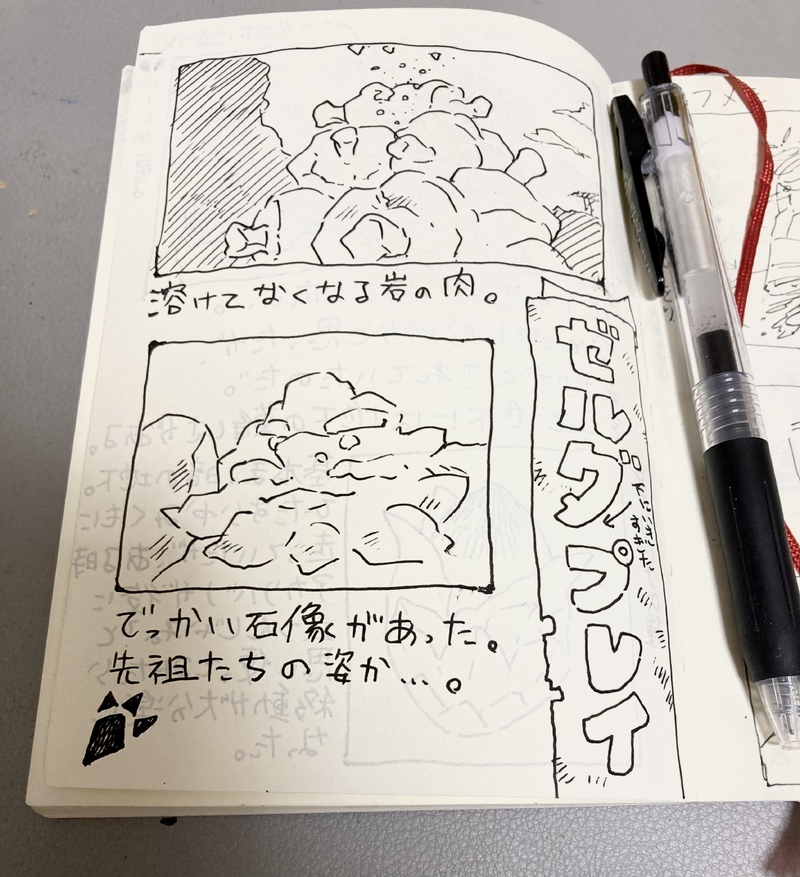 溶けてなくなる岩の肉。
ゼルダプレイ
でっかい石像があった。
先祖たちの姿か…。